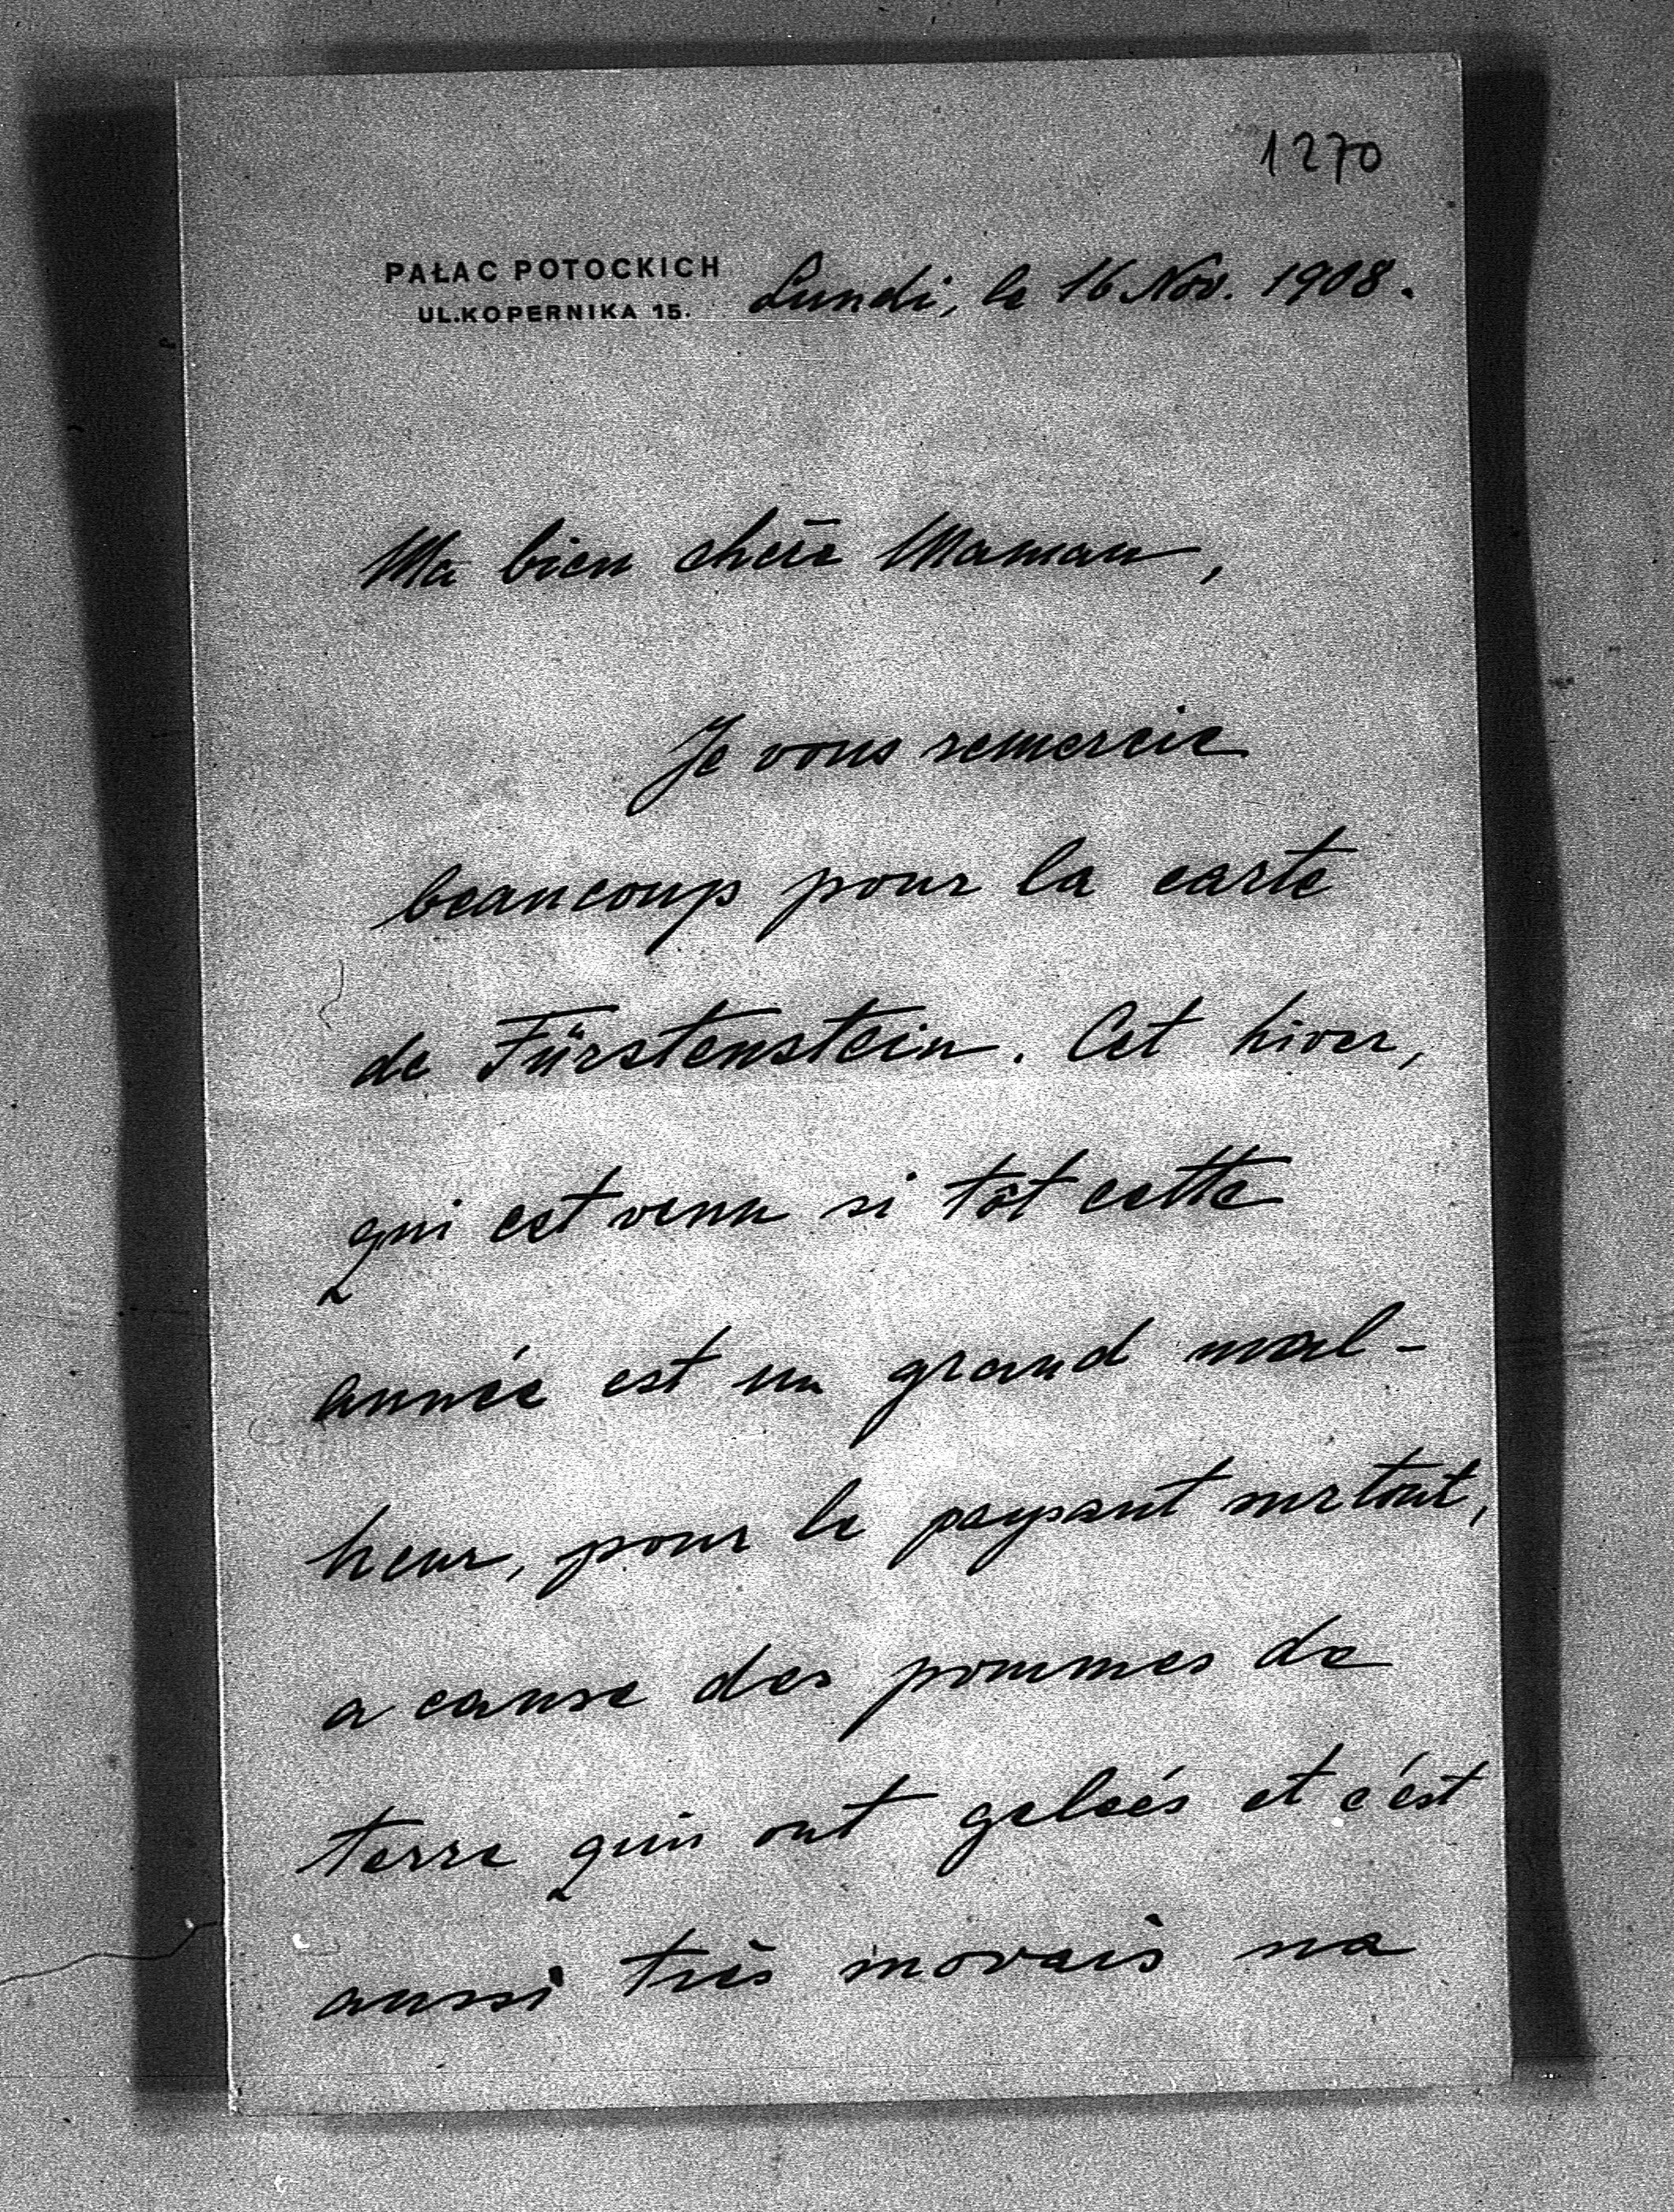 1270
PAŁAC POTOCKICH
UL.KOPERNIKA 15.
Lundi, le 16 Nov. 1908.
Ma bien chère Maman,
Je vous remercie
beaucoup pour la carte
de Fürstenstein. Cet hiver,
qui est venu si tôt cette
année est un grand mal-
heur, pour le paysant surtout,
a cause des pommes de
terre qui ont gelées et c'est
aussi très movais na